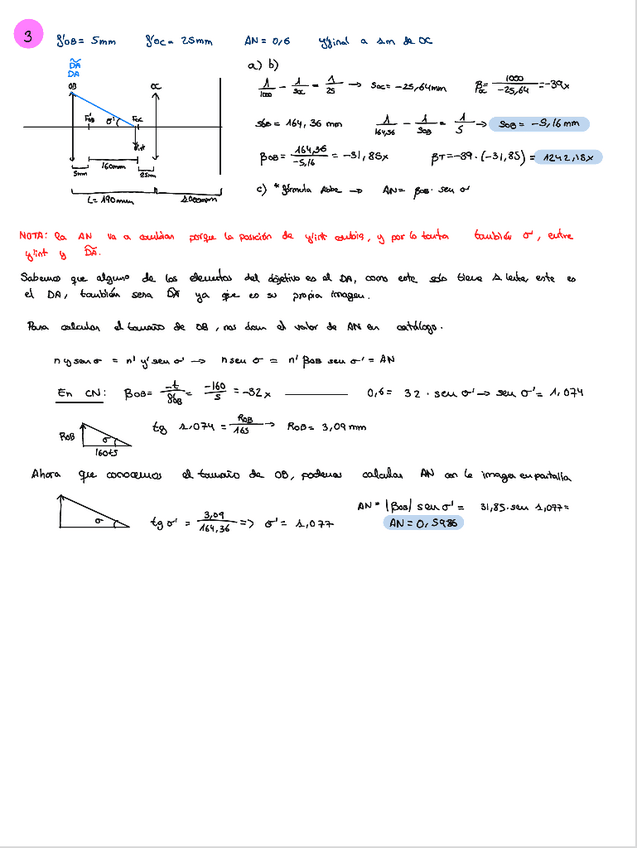 3
f'OB = 5mm f'OC = 25mm AN = 0,6 y'final a 1m de OC
D̃A
DA
OB
OC
F'OB
σ'
FOC
y'int
5mm
160mm
25mm
L = 190mm
1000mm
a) b)
1/1000 - 1/SOC = 1/25 → SOC = -25,64mm βOC = 1000/-25,64 = -39x
S'OB = 164,36 mm 1/164,36 - 1/SOB = 1/5 → SOB = -5,16 mm
βOB = 164,36/-5,16 = -31,85x βT = -39 · (-31,85) = 1242,15x
c) * fórmula sobre → AN = βOB · sen σ'
NOTA: la AN va a cambiar porque la posición de y'int cambia, y por lo tanto también σ', entre
y'int y D̃A.
Sabemos que alguno de los elementos del objetivo es el DA, como este sólo tiene 1 lente este es
el DA, también será D̃A ya que es su propia imagen.
Para calcular el tamaño de OB, nos dan el valor de AN en catálogo.
n y sen σ = n' y' sen σ' → n sen σ = n' βOB sen σ' = AN
En CN: βOB = -t/f'OB = -160/5 = -32x 0,6 = 32 · sen σ' → sen σ' = 1,074
ROB
σ
160+5
tg 1,074 = ROB/165 → ROB = 3,09 mm
Ahora que conocemos el tamaño de OB, podemos calcular AN con la imagen en pantalla
σ
tg σ' = 3,09/164,36 => σ' = 1,077
AN = |βOB| sen σ' = 31,85 · sen 1,077 =
AN = 0,5986